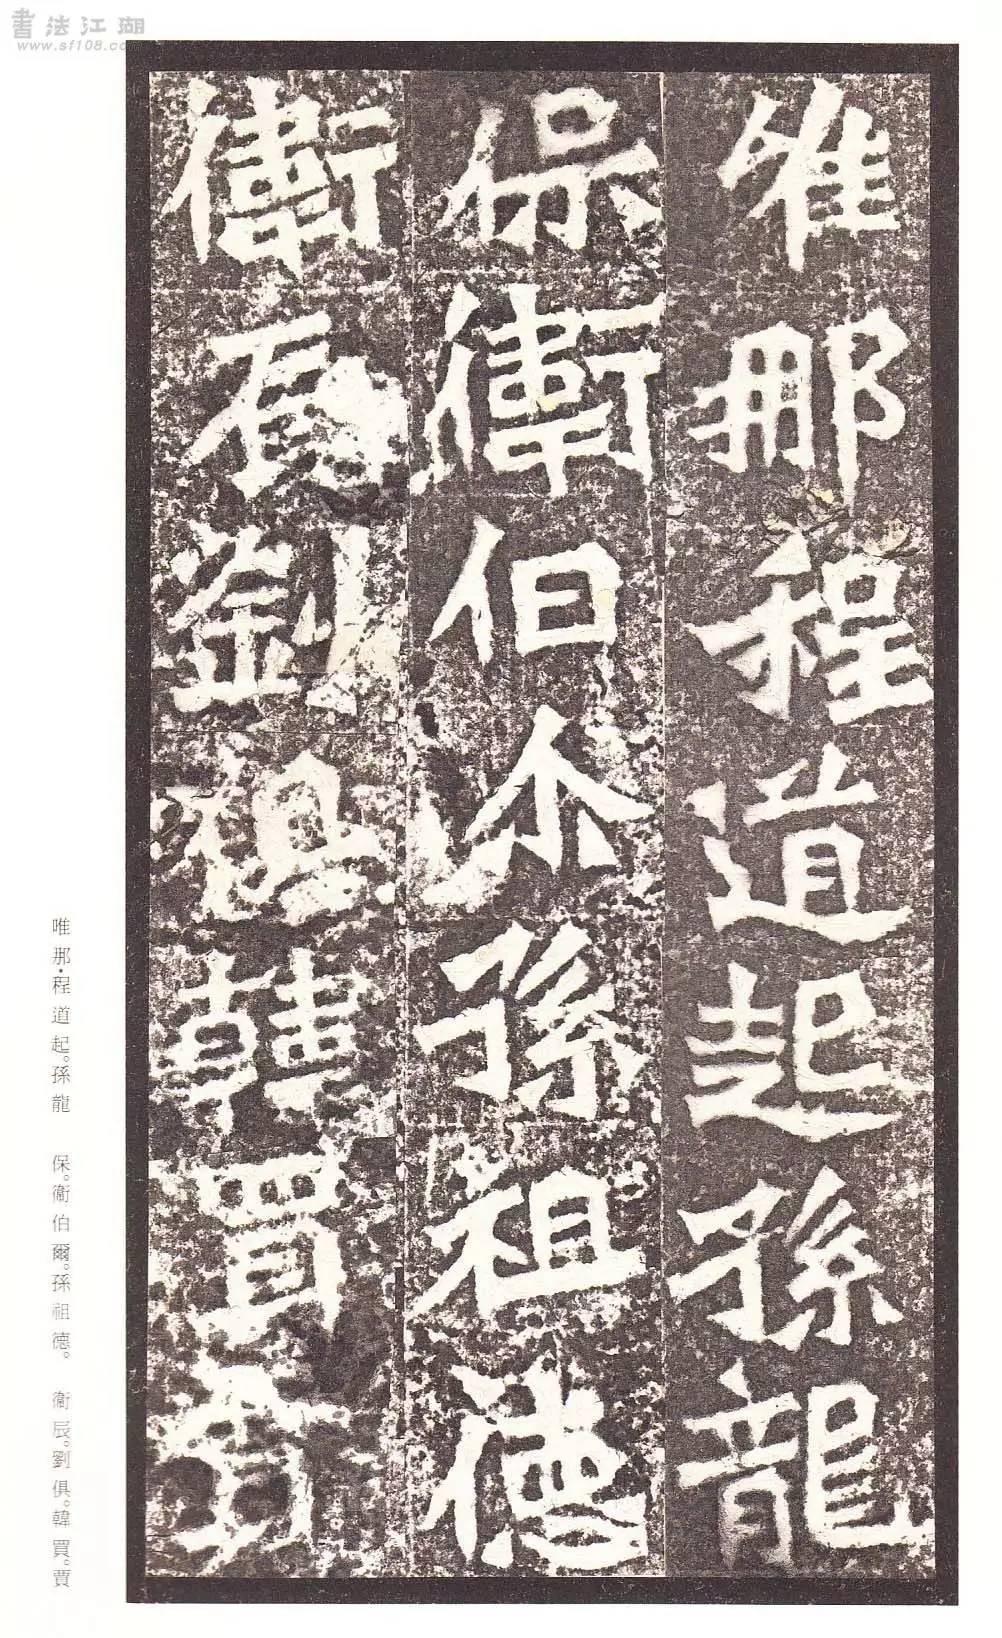 書法江湖
www.sf108.co
唯那程道起孫龍
保衞伯尒孫祖德
衞辰劉俱韓買賈
唯那·程道起。孫龍　保。衞伯爾。孫祖德。　衞辰。劉俱。韓買。賈